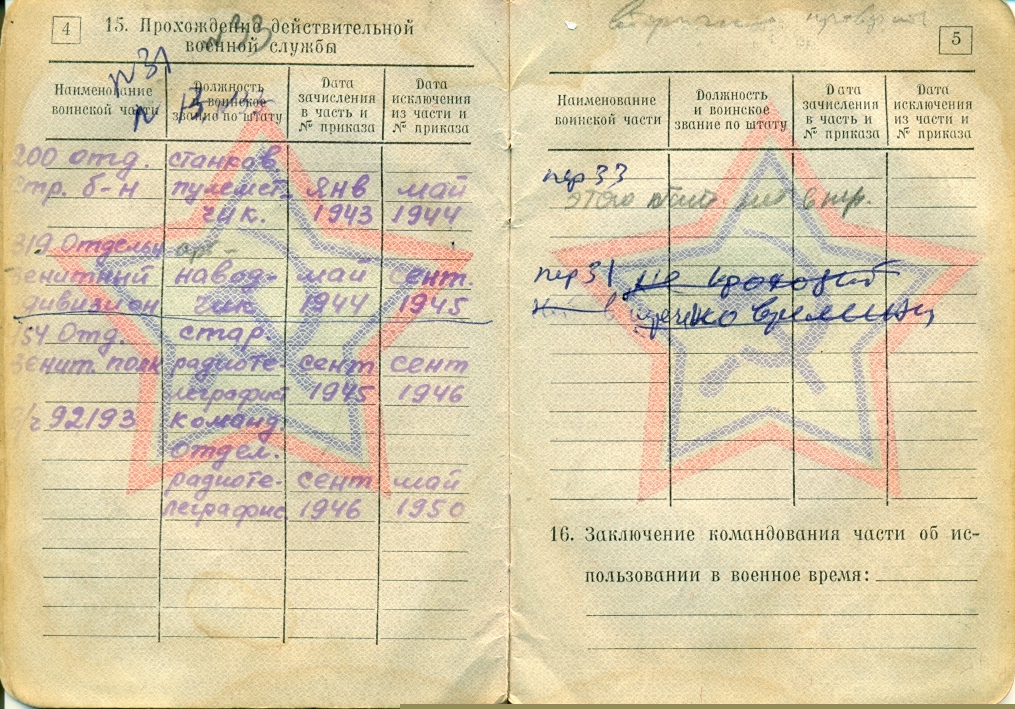 4
15. Прохождение действительной
военной службы
n 33
n 31
n 13
Наименование
воинской части
Должность
и воинское
звание по штату
Дата
зачисления
в часть и
№ приказа
Дата
исключения
из части и
№ приказа
200 отд. станков.
стр. б-н пулемет- янв май
чик. 1943 1944
319 Отдельн
зенитный навод- май сент.
дивизион чик 1944 1945
154 Отд. стар.
зенит. полк радиоте- сент сент
леграфист 1945 1946
в/ч 92193 команд.
отдел.
радиоте- сент май
леграфис. 1946 1950
5
Наименование
воинской части
Должность
и воинское
звание по штату
Дата
зачисления
в часть и
№ приказа
Дата
исключения
из части и
№ приказа
пер 33
этого
пер 31 не
в времени
16. Заключение командования части об ис-
пользовании в военное время: